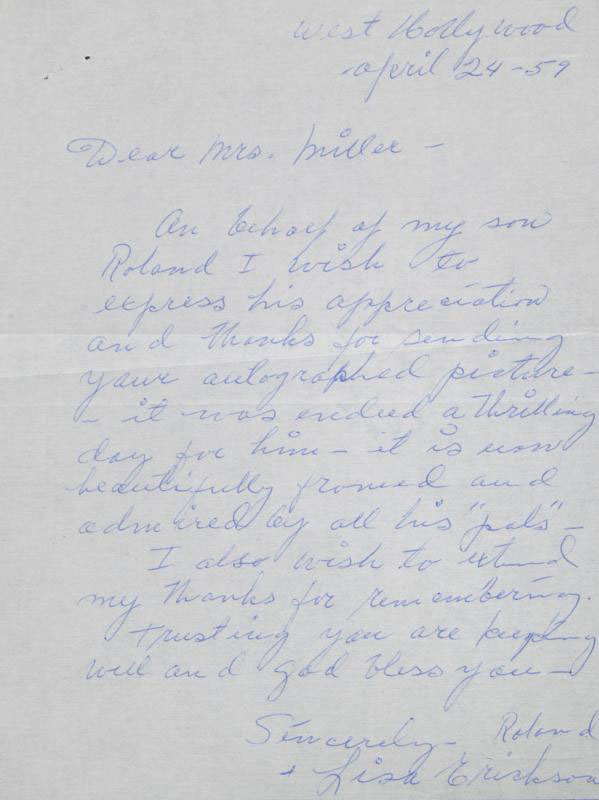 West Hollywood
April 24-59
Dear Mrs. Miller -
On behalf of my son
Roland I wish to
express his appreciation
and thanks for sending
your autographed picture -
- it was endeed a thrilling
day for him - it is now
beautifully framed and
admired by all his "pals" -
I also wish to extend
my thanks for remembering.
Trusting you are keeping
well and god bless you -
Sincerely - Roland
+ Lisa Erickson